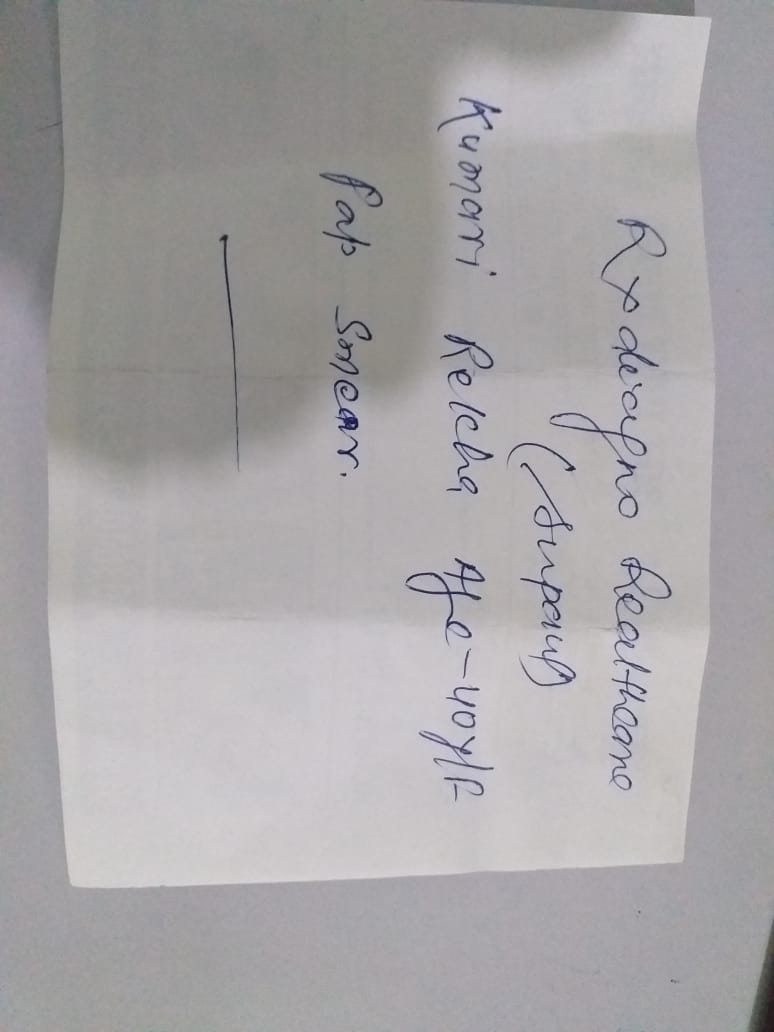 Rxdiagno Healthcare
(Supaul)
Kumari Rekha Age-40y/F
Pap Smear.